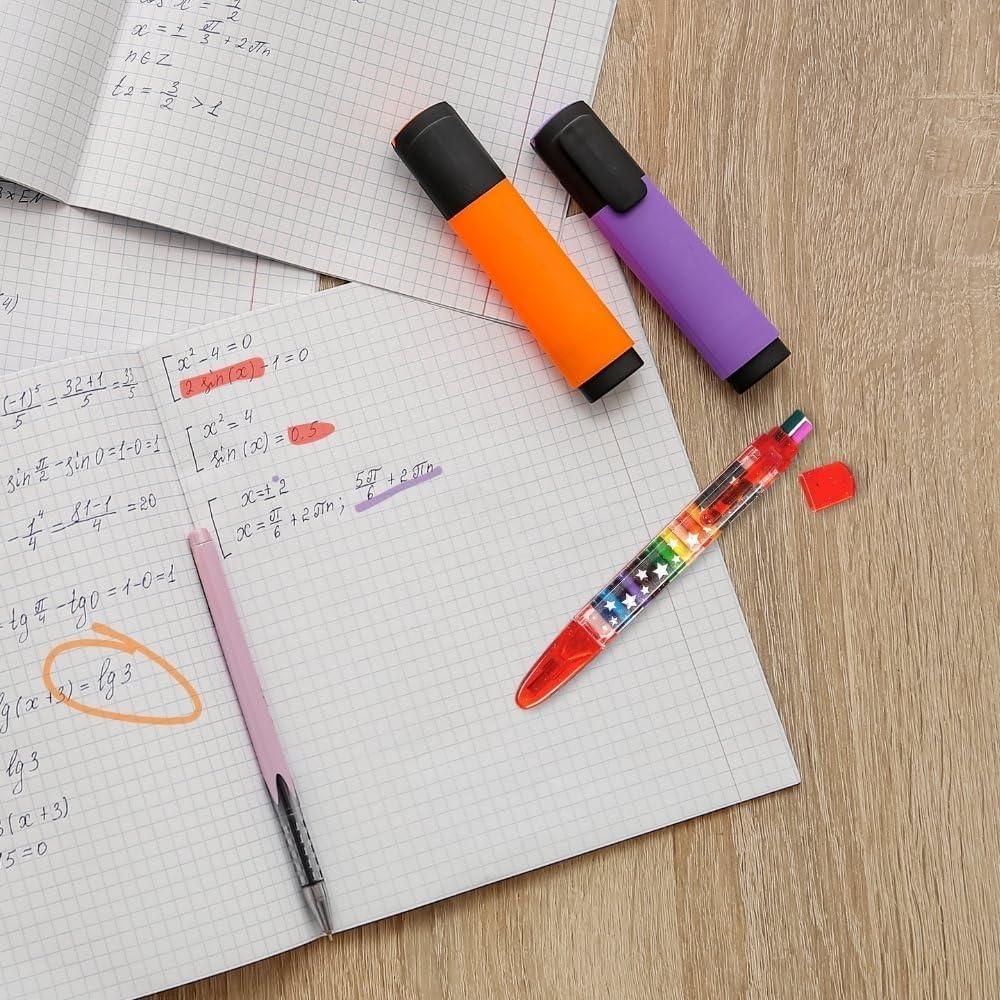 cos x = 1/2
x = ± π/3 + 2πn
n∈Z
t2 = 3/2 > 1
(-1)^5/5 = 32+1/5 = 33/5
sin π/2 - sin 0 = 1-0 = 1
- 1^4/4 = 81-1/4 = 20
= tg π/4 - tg 0 = 1-0 = 1
lg(x+3) = lg3
lg3
3(x+3)
15 = 0
x² - 4 = 0
2 sin(x) - 1 = 0
x² = 4
sin(x) = 0,5
x = ± 2
x = π/6 + 2πn; 5π/6 + 2πn